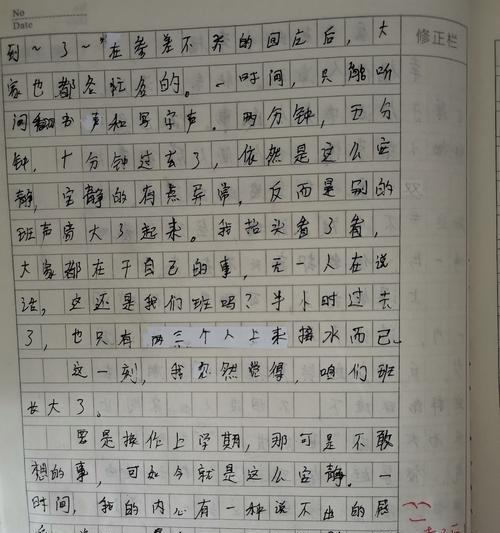 No
Date
修正栏
到～了～"在参差不齐的回应后，大
家也都各忙各的。一时间，只能听
间翻书声和写字声。两分钟，五分
钟，十分钟过去了，依然是这么安
静，安静的有点异常，反而是别的
班声音大了起来。我抬头看了看，
大家都在干自己的事，无一人在说
话，这还是我们班吗？半小时过去
了，也只有两三个人上来接水而已。
这一刻，我忽然觉得，咱们班
长大了。
要是换作上学期，那可是不敢
想的事，可如今就是这么安静。一
时间，我的内心有一种说不出的感